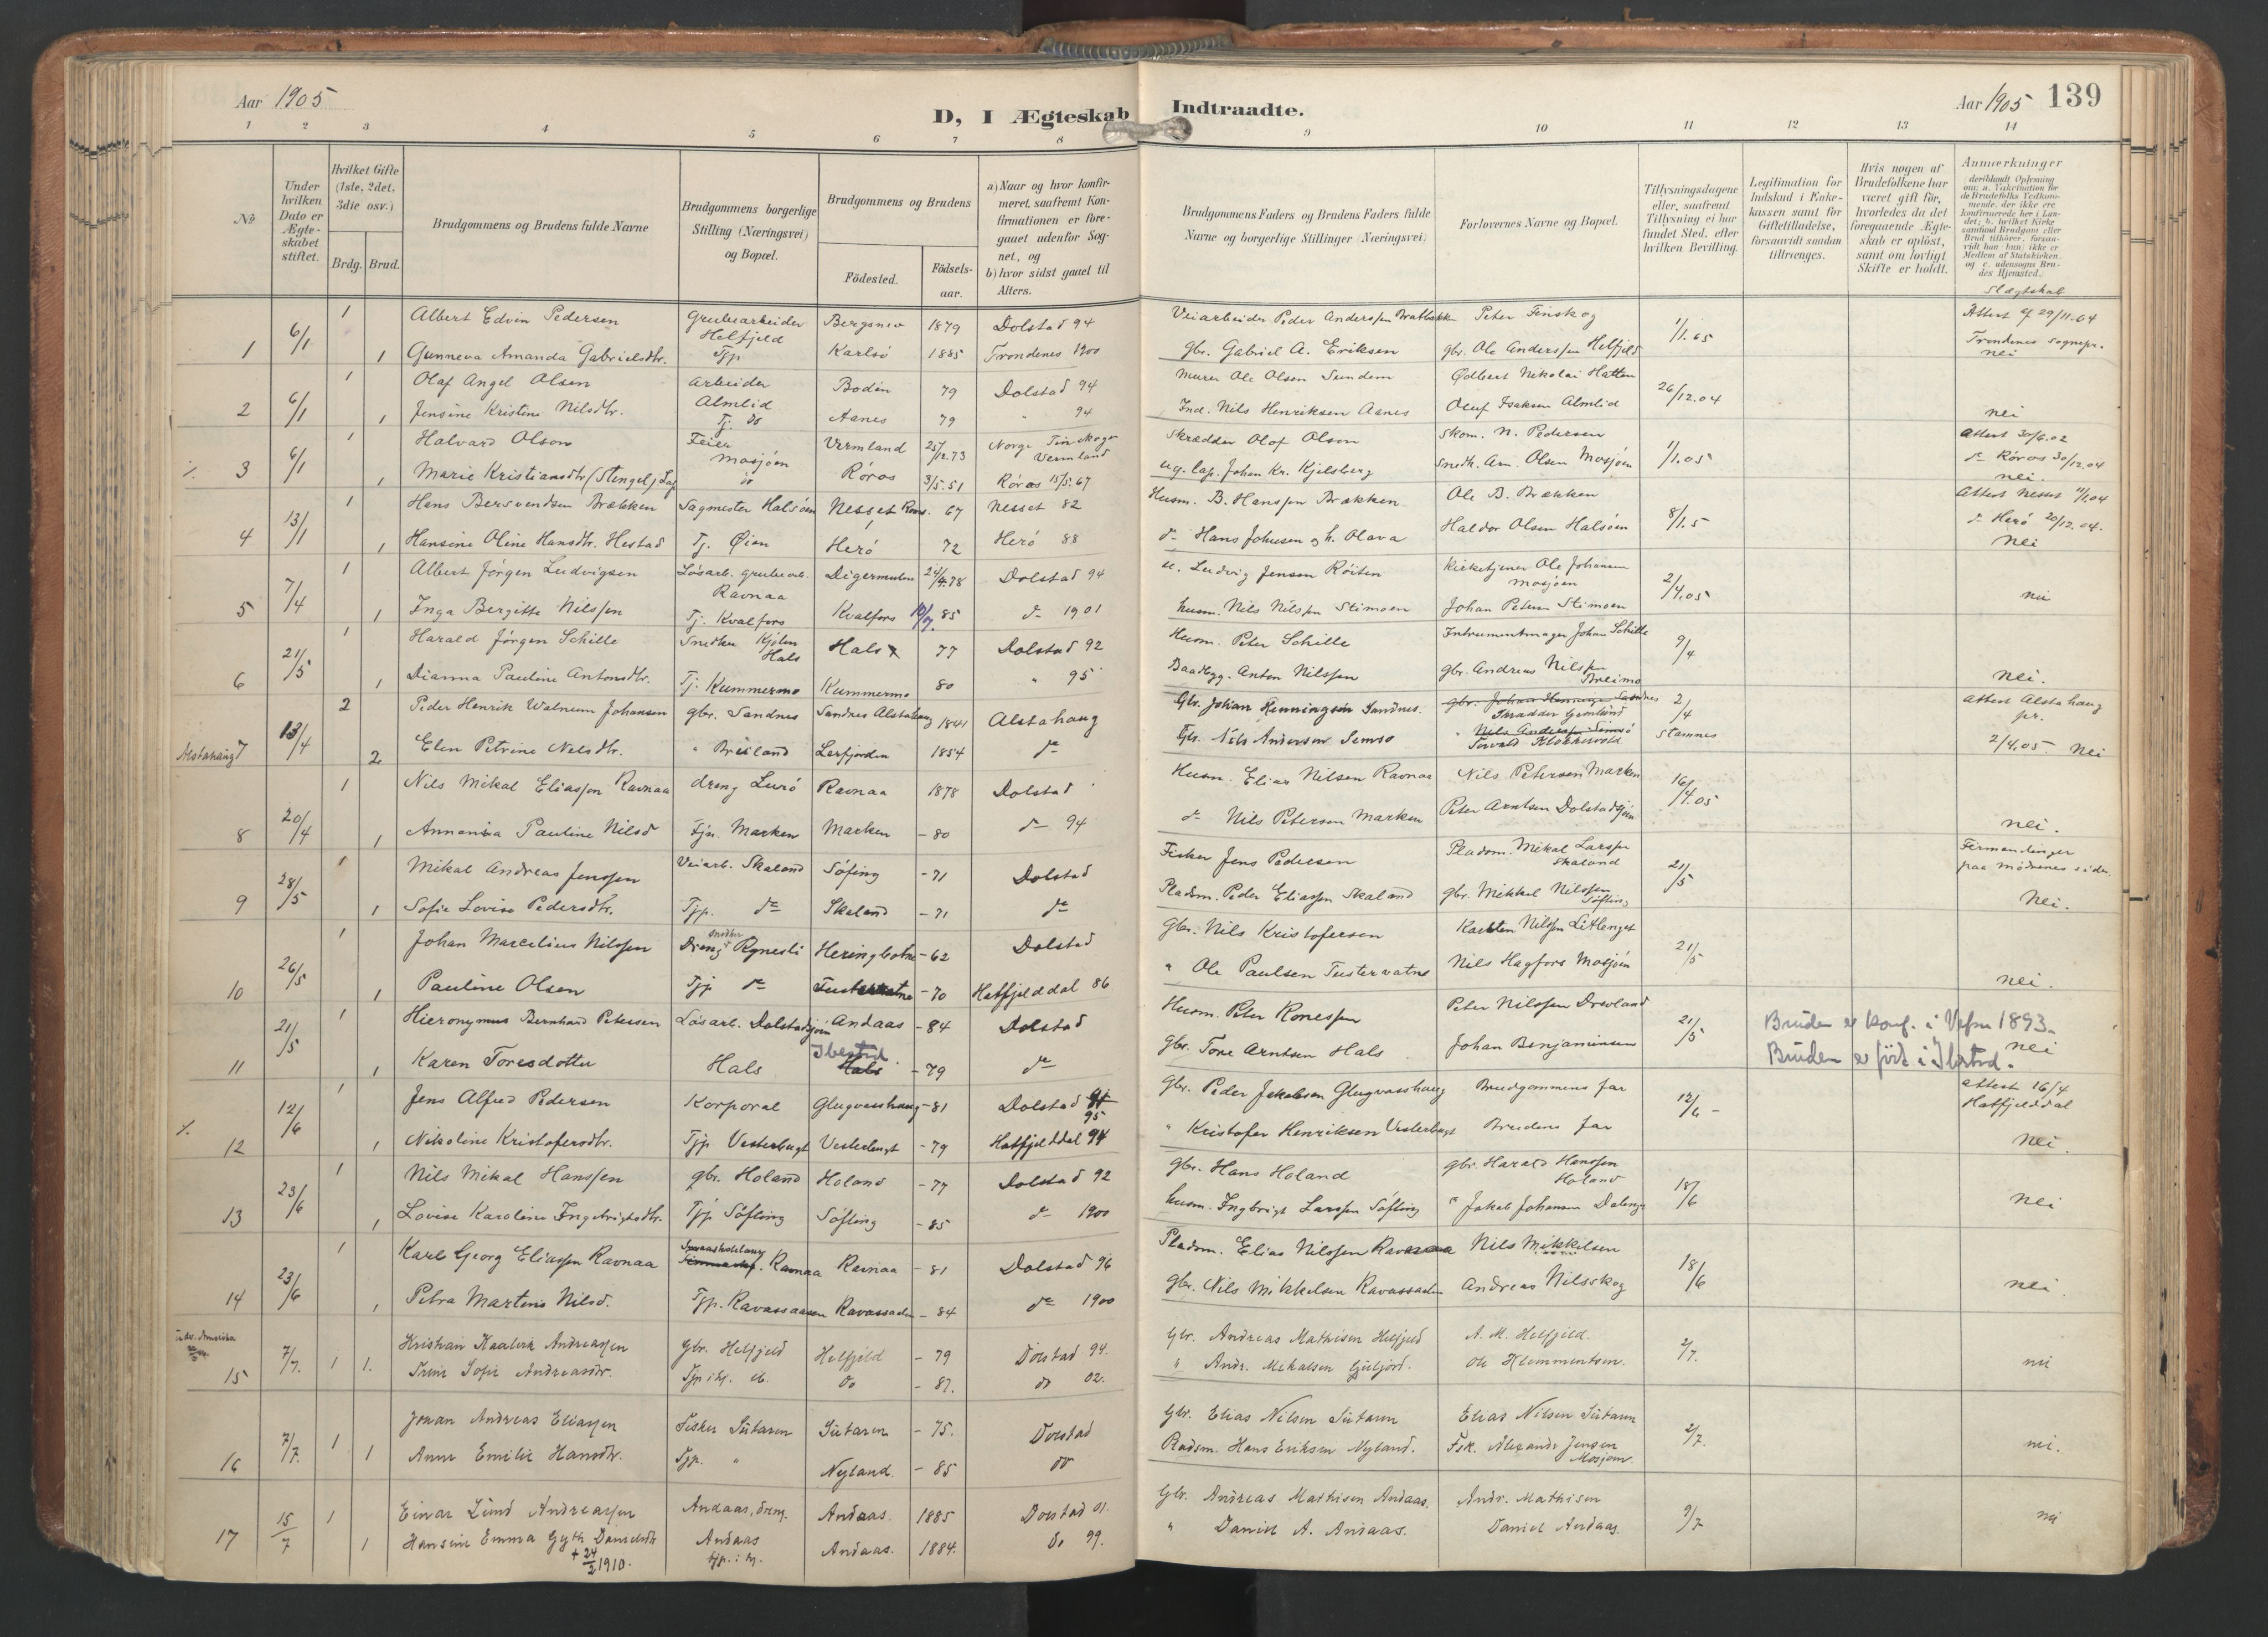 Aar 1905
D, I Ægteskab Indtraadte.
Aar 1905 139
1 2 3 4 5 6 7 8 9 10 11 12 13 14
No
Under hvilken Dato er Ægteskabet stiftet.
Hvilket Gifte (1ste, 2det, 3die osv.)
Brdg. Brud.
Brudgommens og Brudens fulde Navne
Brudgommens borgerlige Stilling (Næringsvei) og Bopæl.
Brudgommens og Brudens
Födested.
Födselsaar.
a) Naar og hvor konfirmeret, saafremt Konfirmationen er foregaaet udenfor Sognet, og
b) hvor sidst gaaet til Alters.
Brudgommens Faders og Brudens Faders fulde Navne og borgerlige Stillinger (Næringsvei)
Forlovernes Navne og Bopæl.
Tillysningsdagene eller, saafremt Tillysning ei har fundet Sted, efter hvilken Bevilling.
Legitimation for Indskud i Enkekassen samt for Giftetilladelse, forsaavidt saadan tiltrænges.
Hvis nogen af Brudefolkene har været gift för, hvorledes da det foregaaende Ægteskab er oplöst, samt om lovligt Skifte er holdt.
Anmærkninger
(deriblandt Oplysning om: a. Vakcination for de Brudefolks Vedkommende, der ikke ere konfirmerede her i Landet; b. hvilket Kirkesamfund Brudgom eller Brud tilhörer, forsaavidt han (hun) ikke er Medlem af Statskirken, og c. udensogns Brudes Hjemsted.)
Slægtskab
6/1 1 Albert Edvin Pedersen Grubearbeider Helfjeld Bergsmo 1879 Dolstad 94 Veiarbeider Peder Anderssen Peter Finskog 1/1.05 Attest af 29/11.04
1 1 Gunneva Amanda Gabrielsdtr. Tjp Karlsö 1885 Trondenes 1900 gbr. Gabriel A. Eriksen gbr. Ole Anderssen Helfjeld Trondenes sognepr. nei
6/1 1 Olaf Angel Olsen arbeider Almlid Bodin 79 Dolstad 94 Murer Ole Olsen Sundem Ødbert Nikolai Hatten 26/12.04
2 1 Jensine Kristine Nilsdtr. Tj. do Aanes 79 " 94 Ind. Nils Henriksen Aanes Oluf Isaksen Almlid nei
6/1 1 Halvard Olson Feier Mosjøen Vermland 25/12.73 Norge Vermland Skrædder Olof Olson Skom. N. Pedersen 1/1.05 Attest 30/6.02
3 1 Marie Kristiansdtr (Stengel) Lap do Röros 3/5.51 Röros 15/5.67 ug. Lap. Johan Kr. Kjelsberg Snedk. Arn. Olsen Mosjøen do Röros 30/12.04 nei.
13/1 1 Hans Bersvendsen Brækken Sagmester Halsöen Nesset Roms. 67 Nesset 82 Husm. B. Hanssen Brækken Ole B. Brækken 8/1.5 Attest Nesset 11/1.04
4 1 Hansine Oline Hansdtr. Hestad Tj. Øien Herö 72 Herö 88 do Hans Johnsen og h. Olava Haldor Olsen Halsöen do Herö 20/12.04. Nei
7/4 1 Albert Jörgen Ludvigsen Lösarb. grubearb. Ravnaa Digermulen 24/4.78 Dolstad 94 Ludvig Jensen Röiten Kirketjener Ole Johansen Mosjøen 2/4.05
5 1 Inga Bergitte Nilssen Tj. Kvalfors Kvalfors 10/7. 85 do 1901 husm. Nils Nilssen Stimoen Johan Petersen Stimoen nei
21/5 1 Harald Jörgen Schille Snedker Kjölen Hals Hals 77 Dolstad 92 Husm. Peter Schille Intrumentmager Johan Schille 9/4
6 1 Dianna Pauline Antonsdtr. Tj. Kummermo Kummermo 80 " 95 Baadbygg. Anton Nilssen gbr. Andreas Nilssen Breimo nei.
13/4 2 Peder Henrik Walnum Johansen gbr. Sandnes Sandnes Alstahaug 1841 Alstahaug Gbr. Johan Henningsen Sandnes. gbr. Johan Henningsen Sandnes Skradder Grönlund 2/4 Stamnes Attest Alstahaug pr.
Alstahaug 7 2 Elen Petrine Nilsdtr. " Brisland Leirfjorden 1854 do Gbr. Nils Andersen Semsö " Nils Andersen Semsö Torvald Klokkervold 2/4.05. Nei
20/4 1 Nils Mikal Eliassen Ravnaa dreng Lurö Ravnaa 1878 Dolstad Husm. Elias Nilsen Ravnaa Nils Petersen Marken 16/4.05
8 1 Annania Pauline Nilsd Tjn. Marken Marken - 80 do 94 do Nils Petersen Marken Peter Arntsen Dolstadsjöen nei.
28/5 1 Mikal Andreas Jenssen Veiarb. Skaland Söfting - 71 Dolstad Fisker Jens Pedersen Pladsm. Mikal Larssen Skaland 21/5 Firmenninger paa mödrenes side.
9 1 Sofie Lovise Pedersdtr. Tjp. do Skaland - 71 do Pladsm. Peder Eliassen Skaland gbr. Mikkel Nilssen Söfting Nei.
26/5 1 Johan Marcelius Nilssen Snedker Dreng Rynesli Heringbotne - 62 Dolstad Gbr. Nils Kristofersen Karsten Nilssen Litlenget 21/5
10 1 Pauline Olsen Tjp do Tustervatne - 70 Hatfjelddal 86 " Ole Paulsen Tustervatne Nils Hagfors Mosjöen nei.
21/5 1 Hieronymus Bernhard Petersen Lösarb. Dolstadsjöen Andaas - 84 Dolstad Husm. Peter Ronessen Peter Nilssen Drevland 21/5 Bruden er konf. i Vefsn 1893.
11 1 Karen Toresdotter Hals Ibestad Hals - 79 do gbr. Tore Arntsen Hals Johan Benjaminsen Bruden er född i Ibestad. nei
12/6 1 Jens Alfred Pedersen Korporal Glugvasshaug - 81 Dolstad 95 Gbr. Peder Jakobsen Glugvasshaug Brudgommens far 12/6 - Attest 16/4 Hatfjelddal
12 1 Nikoline Kristofersdtr. Tjp Vesterbugt Vesterbugt - 79 Hatfjelddal 94 " Kristofer Henriksen Vesterbugt Brudens far nei.
23/6 1 Nils Mikal Hanssen gbr. Holand Holand - 77 Dolstad 92 Gbr. Hans Holand gbr. Harald Hanssen Holand 18/6
13 1 Lovise Karoline Ingebrigtsdtr. Tjp Söfting Söfting - 85 do 1900 husm. Ingbrigt Larssen Söfting " Jakob Johansen Dalengr nei
23/6 1 Karl Georg Eliassen Ravnaa Ravnaa Ravnaa - 81 Dolstad 96 Pladsm. Elias Nilssen Ravnaa Nils Mikkelsen 18/6
14 1 Petra Martine Nilsd. Tjp. Ravassaasen Ravassaasen - 84 do 1900 gbr. Nils Mikkelsen Ravassaasen Andreas Nilsskog nei.
7/7. 1 Kristian Kaalerk Andreassen Gbr. Helfjeld Helfjeld - 79 Dolstad 94. Gbr. Andreas Mathisen Helfjeld A. M. Helfjeld. 2/7.
15 1. Trine Sofie Andreasdtr. Do - 82. do 02. " Andr. Mikalsen Ole Klemmentsen. nei
7/7. 1 Johan Andreas Eliassen Fisker Sütaren Sütaren - 75. Dolstad Gbr. Elias Nilsen Sütaren Elias Nilsen Sütaren 2/7.
16 1 Anne Emilie Hansdtr. Tjp. " Nyland. - 85 do Pladsm. Hans Eriksen Nyland. Fsk. Alexandr Jensen Mosjøen nei.
15/7 1 Einar Lund Andreassen Andaas, dreng. Andaas. 1885 Dolstad 01. Gbr. Andreas Mathisen Andaas. Andr. Mathisen 9/7
17 1 Hansine Emma Gyth Danielsdtr Andaas Andaas. 1884. Do 99. " Daniel A. Andaas. Daniel Andaas. nei
+ 24/2 1910.